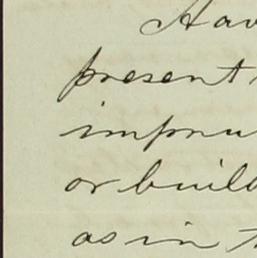 Hav
present
impru
or build
as in t